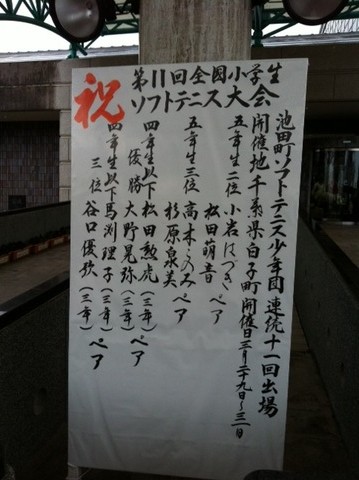 祝
第11回全国小学生
ソフトテニス大会
池田町ソフトテニス少年団連続十一回出場
開催地千葉県白子町開催日三月二十九日〜三一日
五年生二位 小岩はづき
松田萌音 ペア
五年生三位 高木このみ
杉原泉美 ペア
四年生以下 松田勲虎(三年)
優勝 大野晃弥(三年) ペア
四年生以下 馬渕理子(三年)
三位 谷口優玖(三年) ペア